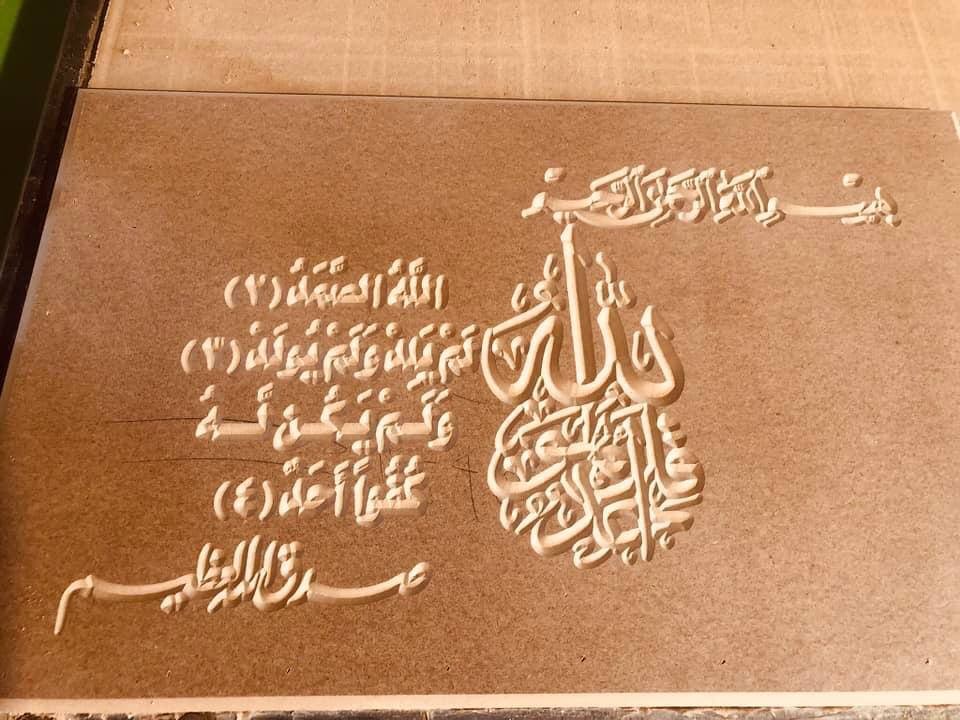 بسم الله الرحمن الرحيم
قل هو الله أحد
اللَّهُ الصَّمَدُ (٢)
لَمْ يَلِدْ وَلَمْ يُولَدْ (٣)
وَلَمْ يَكُن لَّهُ
كُفُواً أَحَدٌ (٤)
صدق الله العظيم